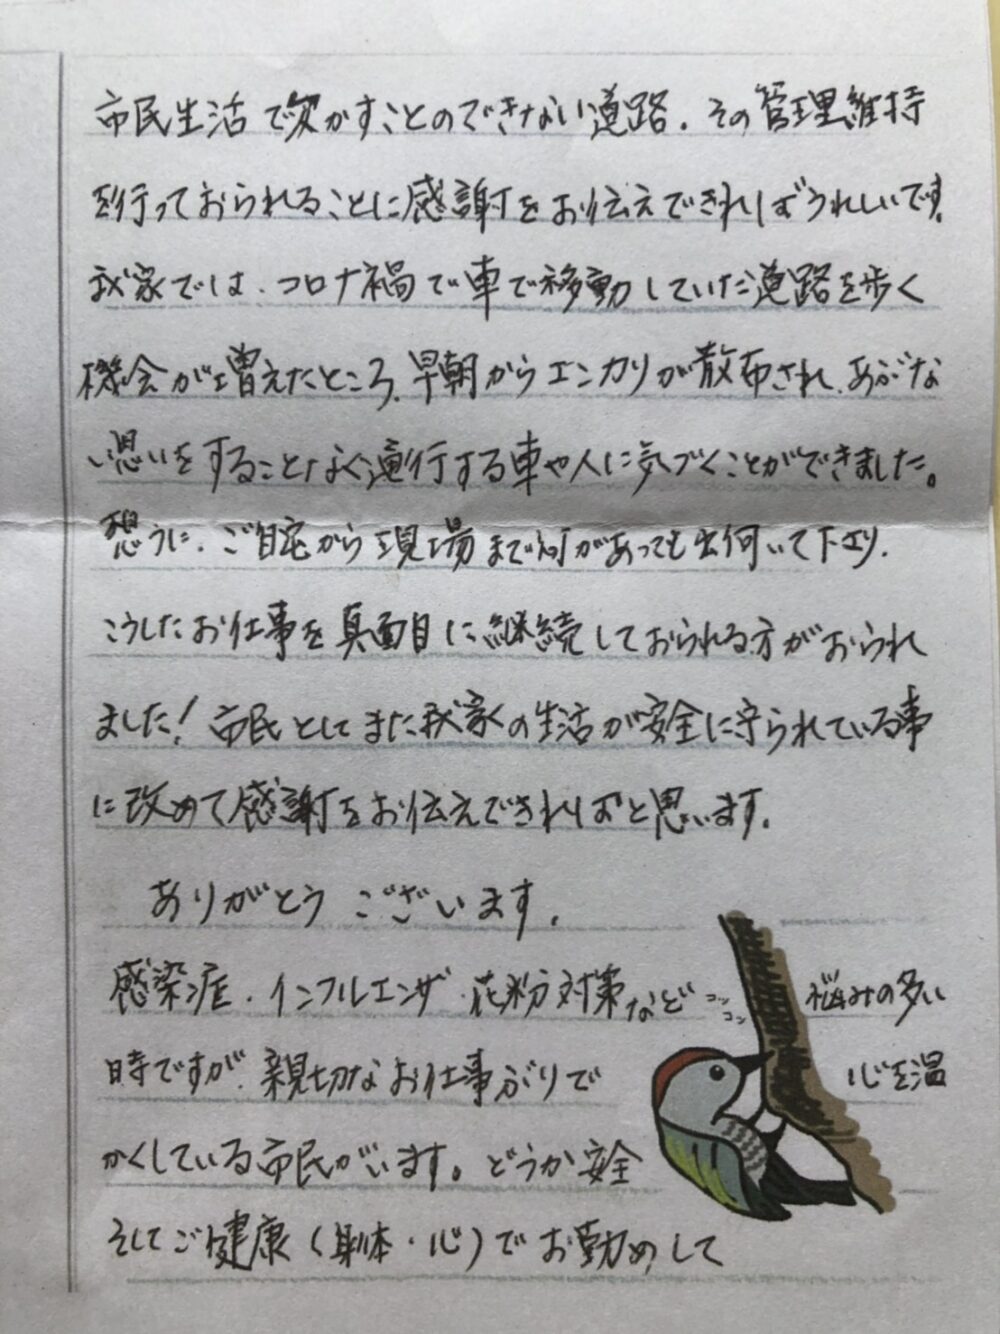 市民生活で欠かすことのできない道路、その管理維持
を行っておられることに感謝をお伝えできればうれしいです。
我家では、コロナ禍で車で移動していた道路を歩く
機会が増えたところ、早朝からエンカリが散布され、あぶな
い思いをすることなく運行する車や人に気づくことができました。
想うに、ご自宅から現場まで何があっても出向いて下さり、
こうしたお仕事を真面目に継続しておられる方がおられ
ました！市民としてまた我家の生活が安全に守られている事
に改めて感謝をお伝えできればと思います。
ありがとうございます。
感染症、インフルエンザ、花粉対策など 悩みの多い
コンコン
時ですが、親切なお仕事ぶりで 心を温
かくしている市民がいます。どうか安全
そしてご健康（身体・心）でお勤めして